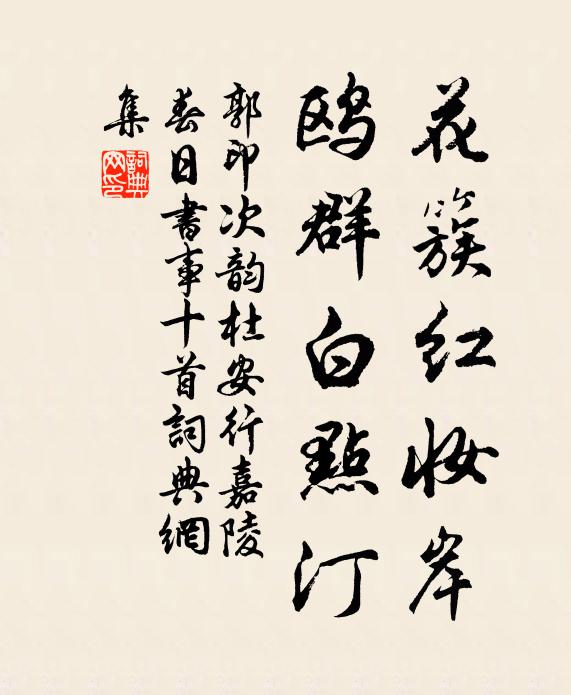 花簇红妆岸
鸥群白點汀
郭印次韵杜安行嘉陵
春日書事十首詞典網
集
詞典
网印